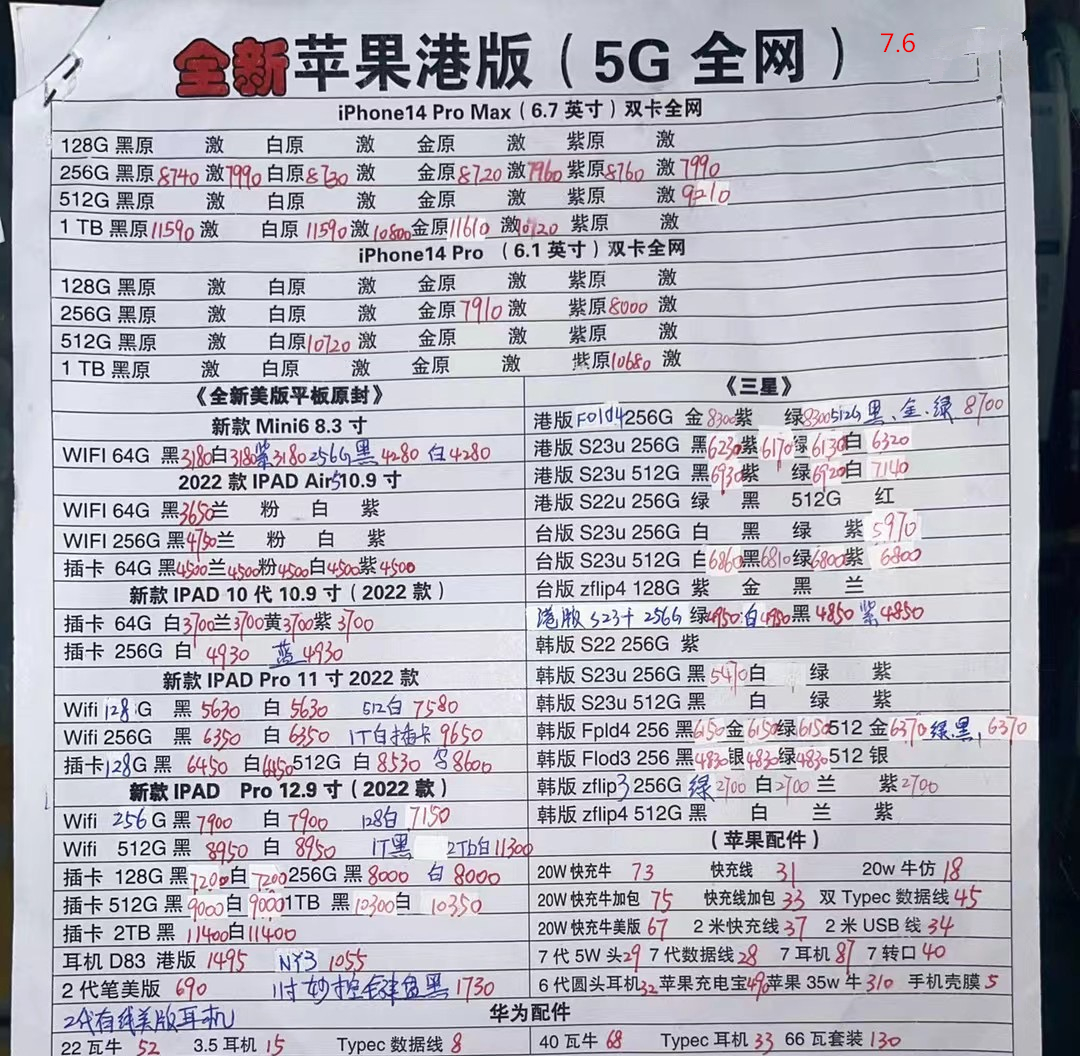 全新苹果港版（5G 全网） 7.6
iPhone14 Pro Max（6.7 英寸）双卡全网
128G 黑原 激 白原 激 金原 激 紫原 激
256G 黑原 8740 激 7990 白原 8730 激 金原 8720 激 7960 紫原 8760 激 7990
512G 黑原 激 白原 激 金原 激 紫原 激 9210
1 TB 黑原 11590 激 白原 11590 激 10800 金原 11610 激 10120 紫原 激
iPhone14 Pro （6.1 英寸）双卡全网
128G 黑原 激 白原 激 金原 激 紫原 激
256G 黑原 激 白原 激 金原 7910 激 紫原 8000 激
512G 黑原 激 白原 10720 激 金原 激 紫原 激
1 TB 黑原 激 白原 激 金原 激 紫原 10680 激
《全新美版平板原封》
新款 Mini6 8.3 寸
WIFI 64G 黑 3180 白 3180 紫 3180 256G 黑 4280 白 4280
2022 款 IPAD Air5 10.9 寸
WIFI 64G 黑 3650 兰 粉 白 紫
WIFI 256G 黑 4750 兰 粉 白 紫
插卡 64G 黑 4500 兰 4500 粉 4500 白 4500 紫 4500
新款 IPAD 10 代 10.9 寸（2022 款）
插卡 64G 白 3700 兰 3700 黄 3700 紫 3700
插卡 256G 白 4930 蓝 4930
新款 IPAD Pro 11 寸 2022 款
Wifi 128 G 黑 5630 白 5630 512白 7580
Wifi 256G 黑 6350 白 6350 1T白插卡 9650
插卡 128G 黑 6450 白 6450 512G 白 8530 8600
新款 IPAD Pro 12.9 寸（2022 款）
Wifi 256 G 黑 7900 白 7900 128白 7150
Wifi 512G 黑 8950 白 8950 1T黑 2Tb白 11300
插卡 128G 黑 7200 白 7200 256G 黑 8000 白 8000
插卡 512G 黑 9000 白 9000 1TB 黑 10300 白 10350
插卡 2TB 黑 11400 白 11400
耳机 D83 港版 1495 NY3 1055
2 代笔美版 690 11寸妙控键盘黑 1730
2代有线美版耳机
《三星》
港版 Fold4 256G 金 8300 紫 绿 8300 512G 黑、金、绿 8700
港版 S23u 256G 黑 6230 紫 6170 绿 6130 白 6320
港版 S23u 512G 黑 6930 紫 绿 6920 白 7140
港版 S22u 256G 绿 黑 512G 红
台版 S23u 256G 白 黑 绿 紫 5970
台版 S23u 512G 白 6860 黑 6810 绿 6800 紫 6800
台版 zflip4 128G 紫 金 黑 兰
港版 S23+ 256G 绿 4950 白 4950 黑 4850 紫 4850
韩版 S22 256G 紫
韩版 S23u 256G 黑 5470 白 绿 紫
韩版 S23u 512G 黑 白 绿 紫
韩版 Fpld4 256 黑 6150 金 6150 绿 6150 512 金 6370 绿.黑, 6370
韩版 Flod3 256 黑 4830 银 4830 绿 4830 512 银
韩版 zflip3 256G 绿 2700 白 2700 兰 紫 2700
韩版 zflip4 512G 黑 白 兰 紫
（苹果配件）
20W 快充牛 73 快充线 31 20w 牛仿 18
20W 快充牛加包 75 快充线加包 33 双 Typec 数据线 45
20W 快充牛美版 67 2 米快充线 37 2 米 USB 线 34
7 代 5W 头 29 7 代数据线 28 7 耳机 87 7 转口 40
6 代圆头耳机 32 苹果充电宝 49 苹果 35w 牛 310 手机壳膜 5
华为配件
22 瓦牛 52 3.5 耳机 15 Typec 数据线 8 40 瓦牛 68 Typec 耳机 33 66 瓦套装 130